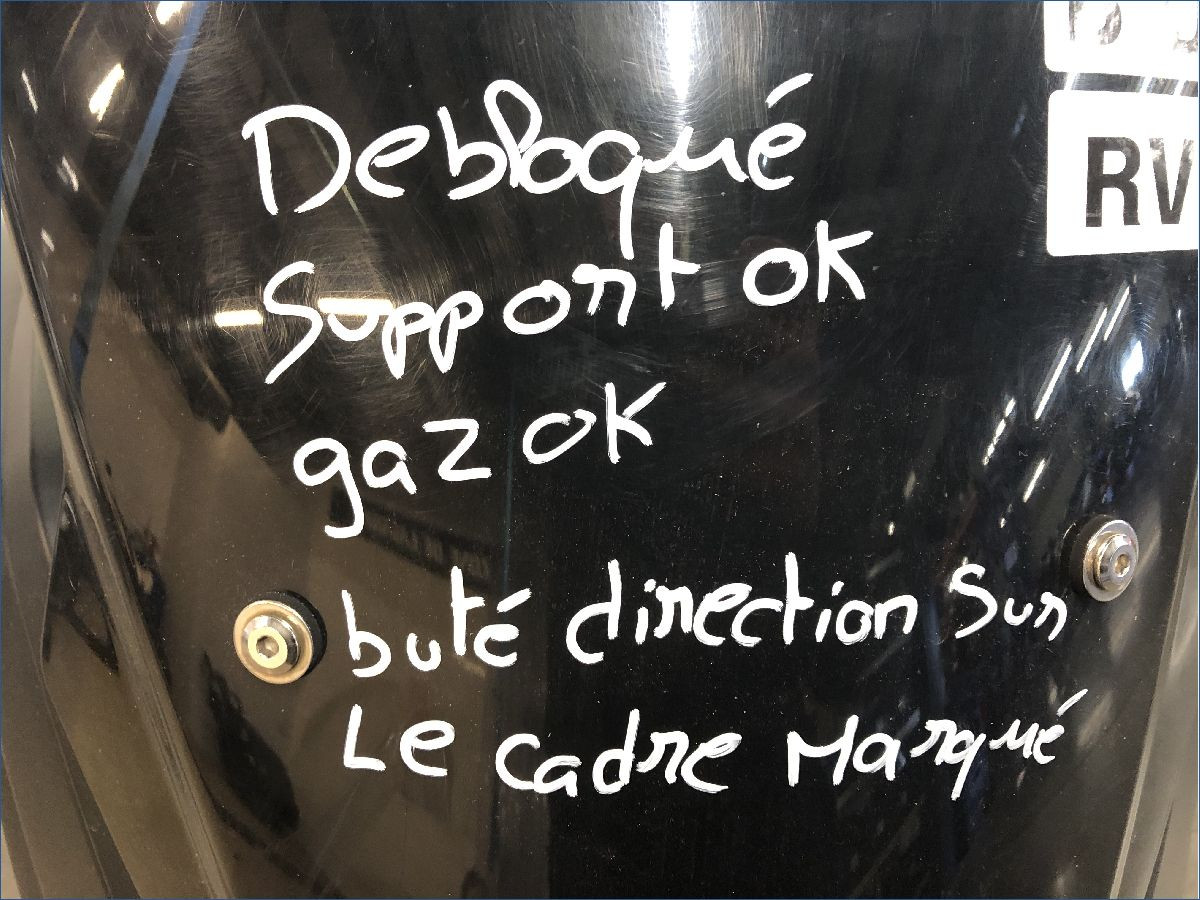 Debloqué
Support ok
gaz ok
buté direction sur
Le cadre Marqué
RV